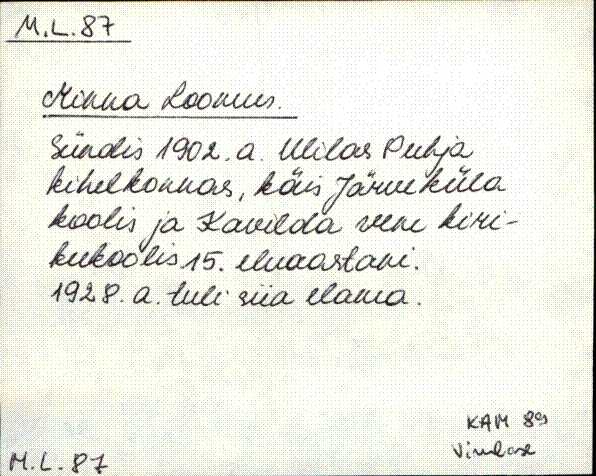 M.L.87
Minna Loomus.
Sündis 1902.a. Ulilas Puhja
kihelkonnas, käis Järveküla
koolis ja Kavilda vene kiri-
kukoolis 15. eluaastani.
1928.a. tuli siia elama.
KAM 89
M.L.87